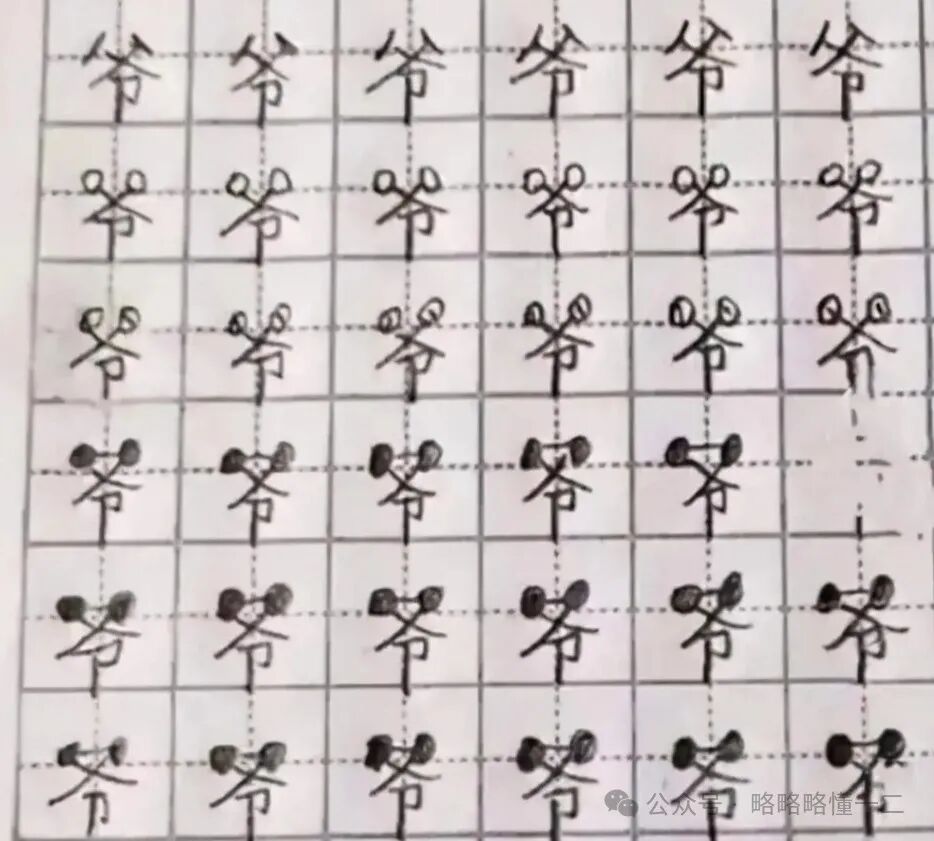 爷爷爷爷爷爷
爷爷爷爷爷爷
爷爷爷爷爷爷
爷爷爷爷爷
爷爷爷爷爷爷
爷爷爷爷爷爷
公众号·略略略懂一二